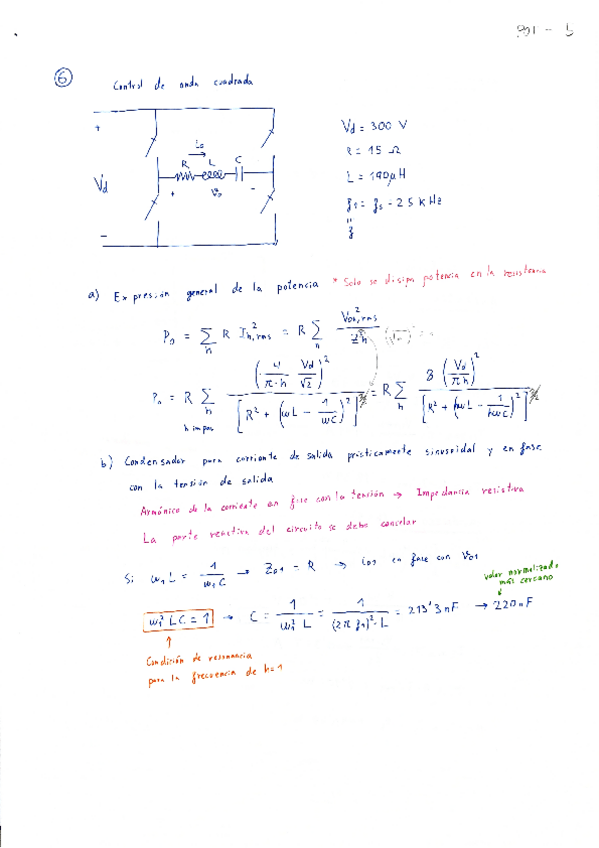 6
Control de onda cuadrada
+
Vd
-
io
R L C
+ vo -
Vd = 300 V
R = 15 Ω
L = 190 μH
f1 = fs = 25 kHz
"
f
a) Expresión general de la potencia * Solo se disipa potencia en la resistencia
Po = Σ_h R I²h,rms = R Σ_h V²oh,rms / Z²h
Po = R Σ_{h impar} (4/(π·h) · Vd/√2)² / [R² + (ωL - 1/(ωC))²] = R Σ_h 8 (Vd/(πh))² / [R² + (hωL - 1/(hωC))²]
b) Condensador para corriente de salida prácticamente sinusoidal y en fase
con la tensión de salida
Armónico de la corriente en fase con la tensión → Impedancia resistiva
La parte reactiva del circuito se debe cancelar
Si ω1 L = 1/(ω1 C) → Zo1 = R → io1 en fase con vo1
valor normalizado
más cercano
ω1² LC = 1 → C = 1/(ω1² L) = 1/((2π f1)²·L) = 213'3nF → 220nF
Condición de resonancia
para la frecuencia de h=1